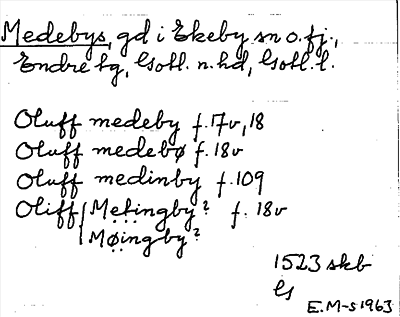 Medebys, gd i Ekeby sn o. fj.,
Endre tg, Gotl. n. hd, Gotl. l.
Oluff medeby f. 17v, 18
Oluff medebø f. 18v
Oluff medinby f. 109
Oliff Metingby? f. 18v
Møingby?
1523 skb
Gs
E.M-s 1963